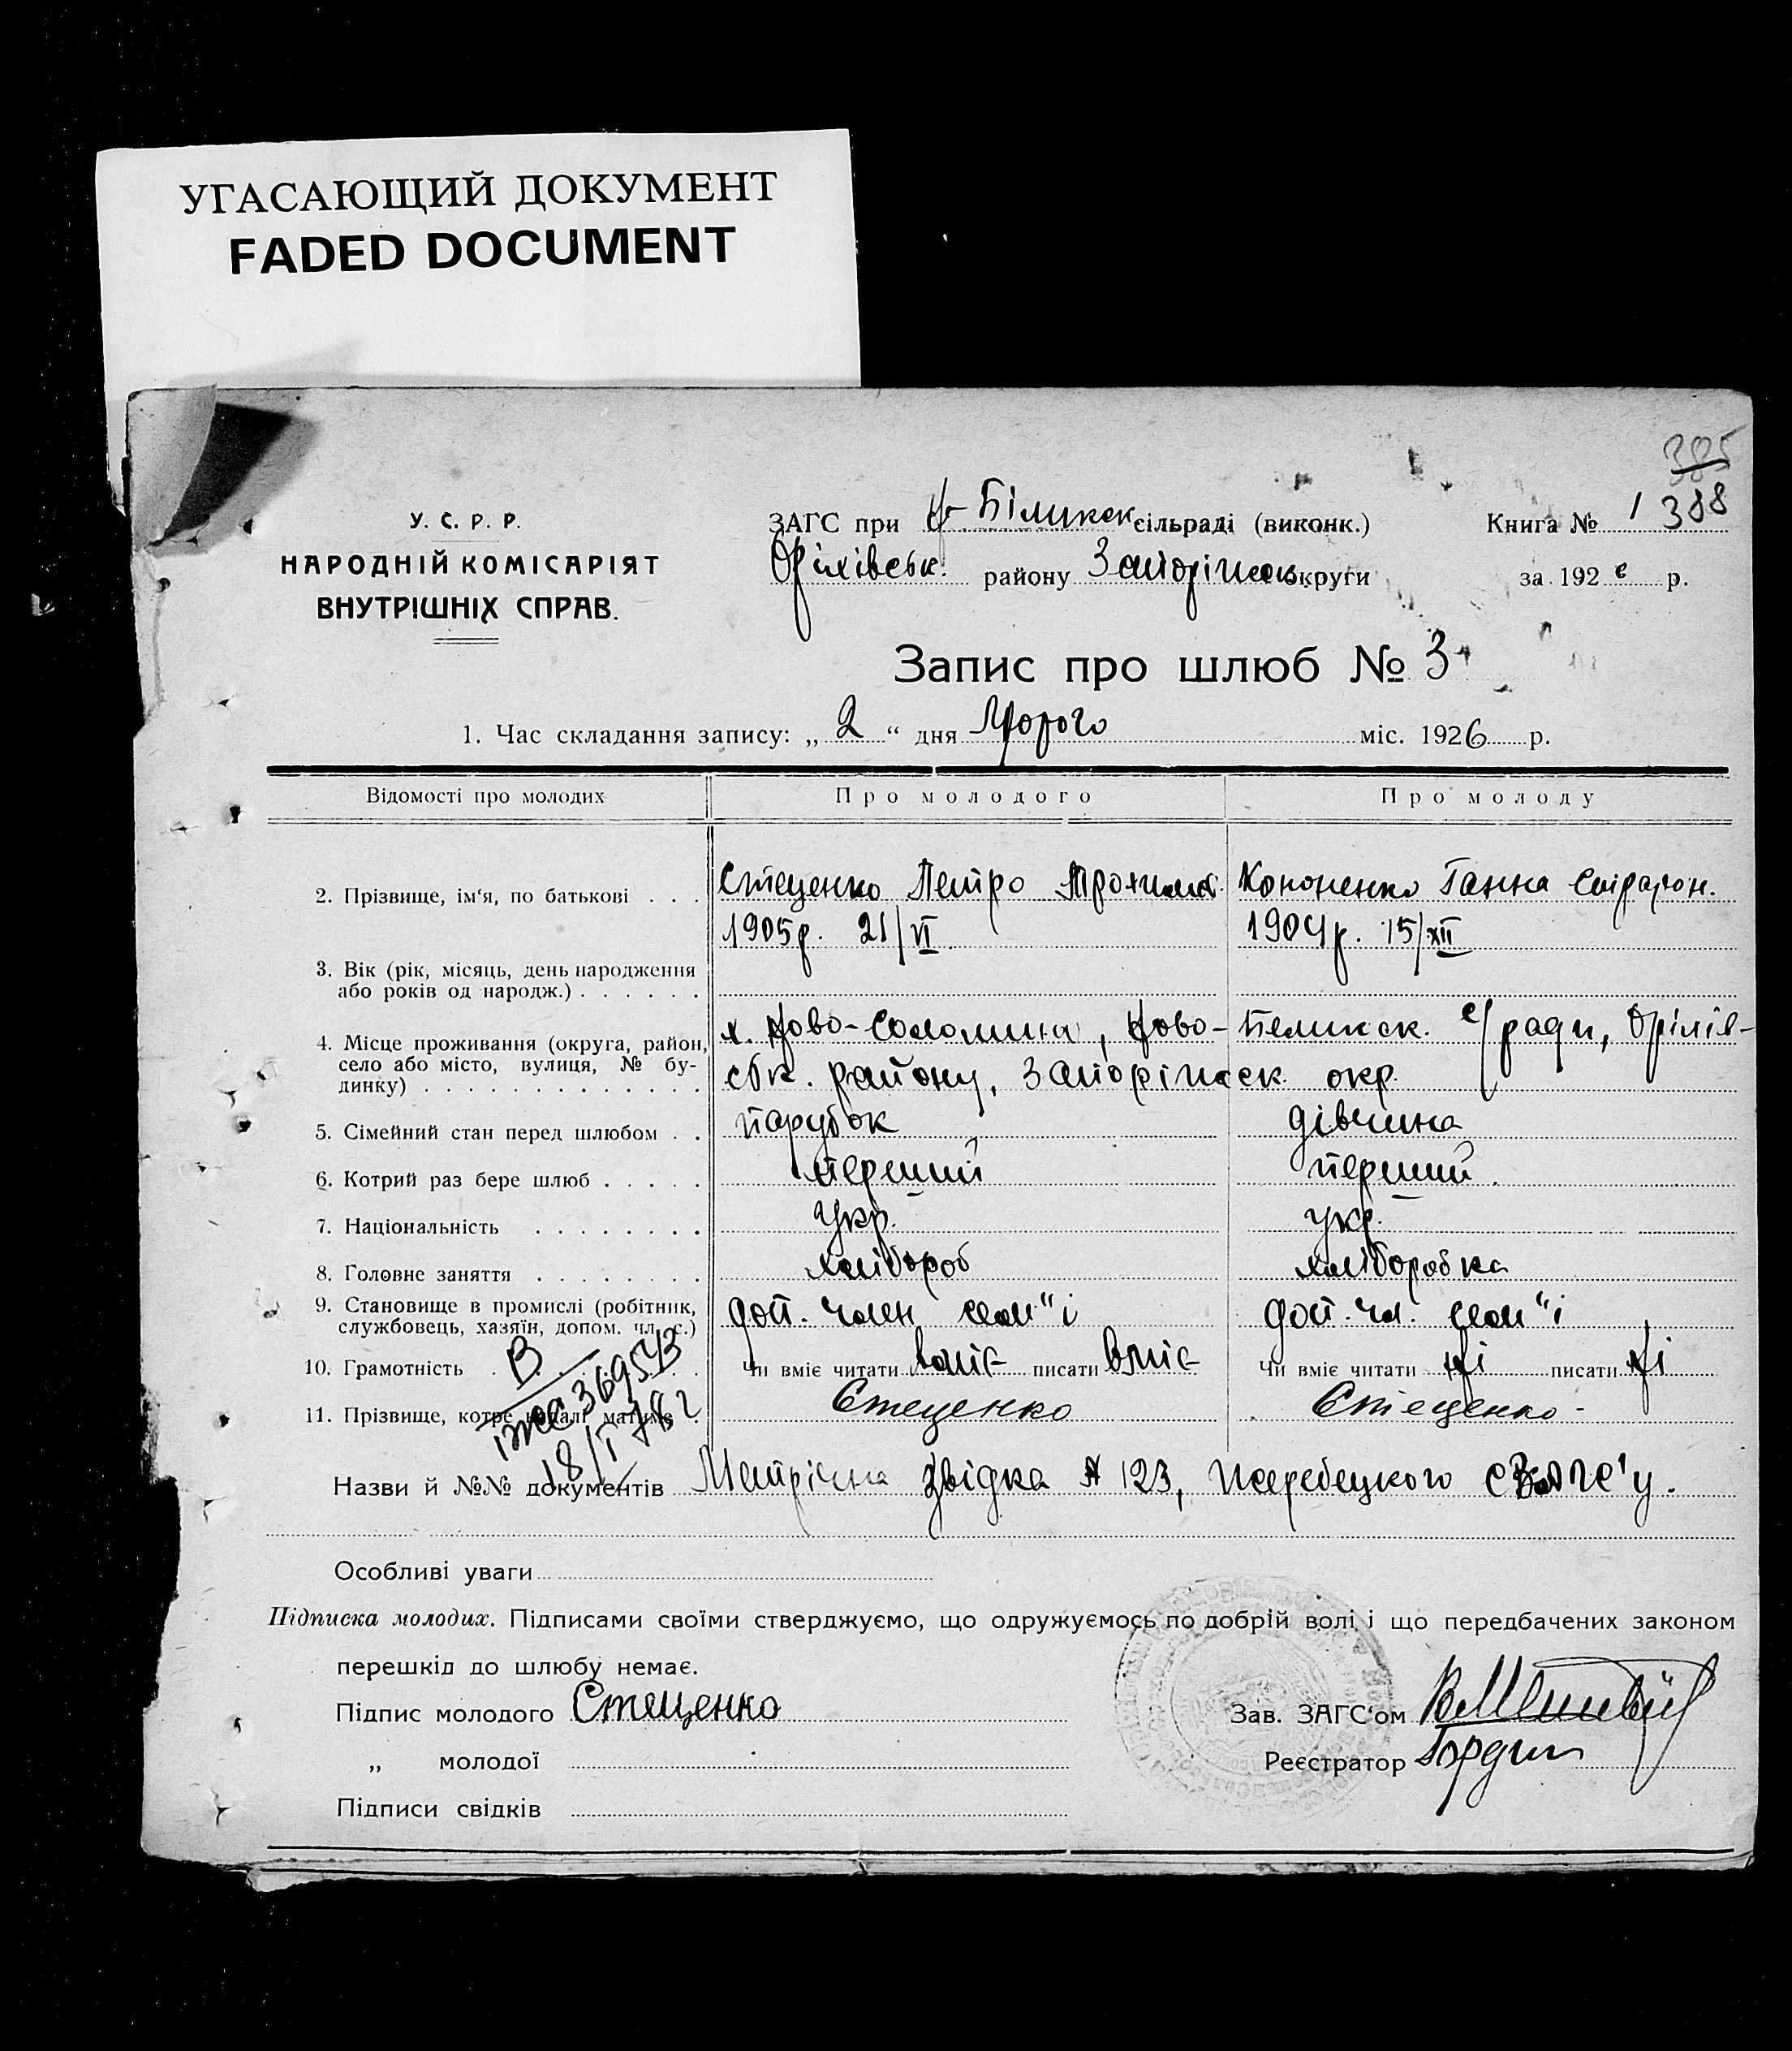 УГАСАЮЩИЙ ДОКУМЕНТ
FADED DOCUMENT
385
У. С. Р. Р.
НАРОДНІЙ КОМІСАРІЯТ
ВНУТРІШНІХ СПРАВ.
ЗАГС при Н-Біликск сільраді (виконк.)
Оріхівськ. району Запоріжськ округи
Книга № 1 388
за 1926 р.
Запис про шлюб № 3
1. Час складання запису: „ 2 “ дня Лютого міс. 1926 р.
Відомості про молодих Про молодого Про молоду
2. Прізвище, ім‘я, по батькові . . . Стеценко Петро Трохимов. Кононенко Ганна Спірідон.
1905р. 21/VI 1904р. 15/XII
3. Вік (рік, місяць, день народження
або років од народж.) . . . . . .
4. Місце проживання (округа, район,
село або місто, вулиця, № бу-
динку) . . . . . . . . . . . . .
х. Ново-Соломина, Ново-Біликск. с/ради, Оріхів-
ськ. району, Запоріжськ. окр.
5. Сімейний стан перед шлюбом . . парубок дівчина
6. Котрий раз бере шлюб . . . . . перший перший
7. Національність . . . . . . . . укр. укр.
8. Головне заняття . . . . . . . . хлібороб хліборобка
9. Становище в промислі (робітник,
службовець, хазяїн, допом. чл. с.)
доп. член сем"ї доп. чл. сем"ї
10. Грамотність . . . Чи вміє читати вміє писати вміє Чи вміє читати ні писати ні
11. Прізвище, котре надалі матиме . Стеценко Стеценко
В
369573
18/I 782
Назви й №№ документів Метрична звідка № 123, Жеребецького ЗАГС'у.
Особливі уваги
Підписка молодих. Підписами своїми стверджуємо, що одружуємось по добрій волі і що передбачених законом
перешкід до шлюбу немає.
Підпис молодого Стеценко
Зав. ЗАГС‘ом
„ молодої
Реєстратор
Підписи свідків